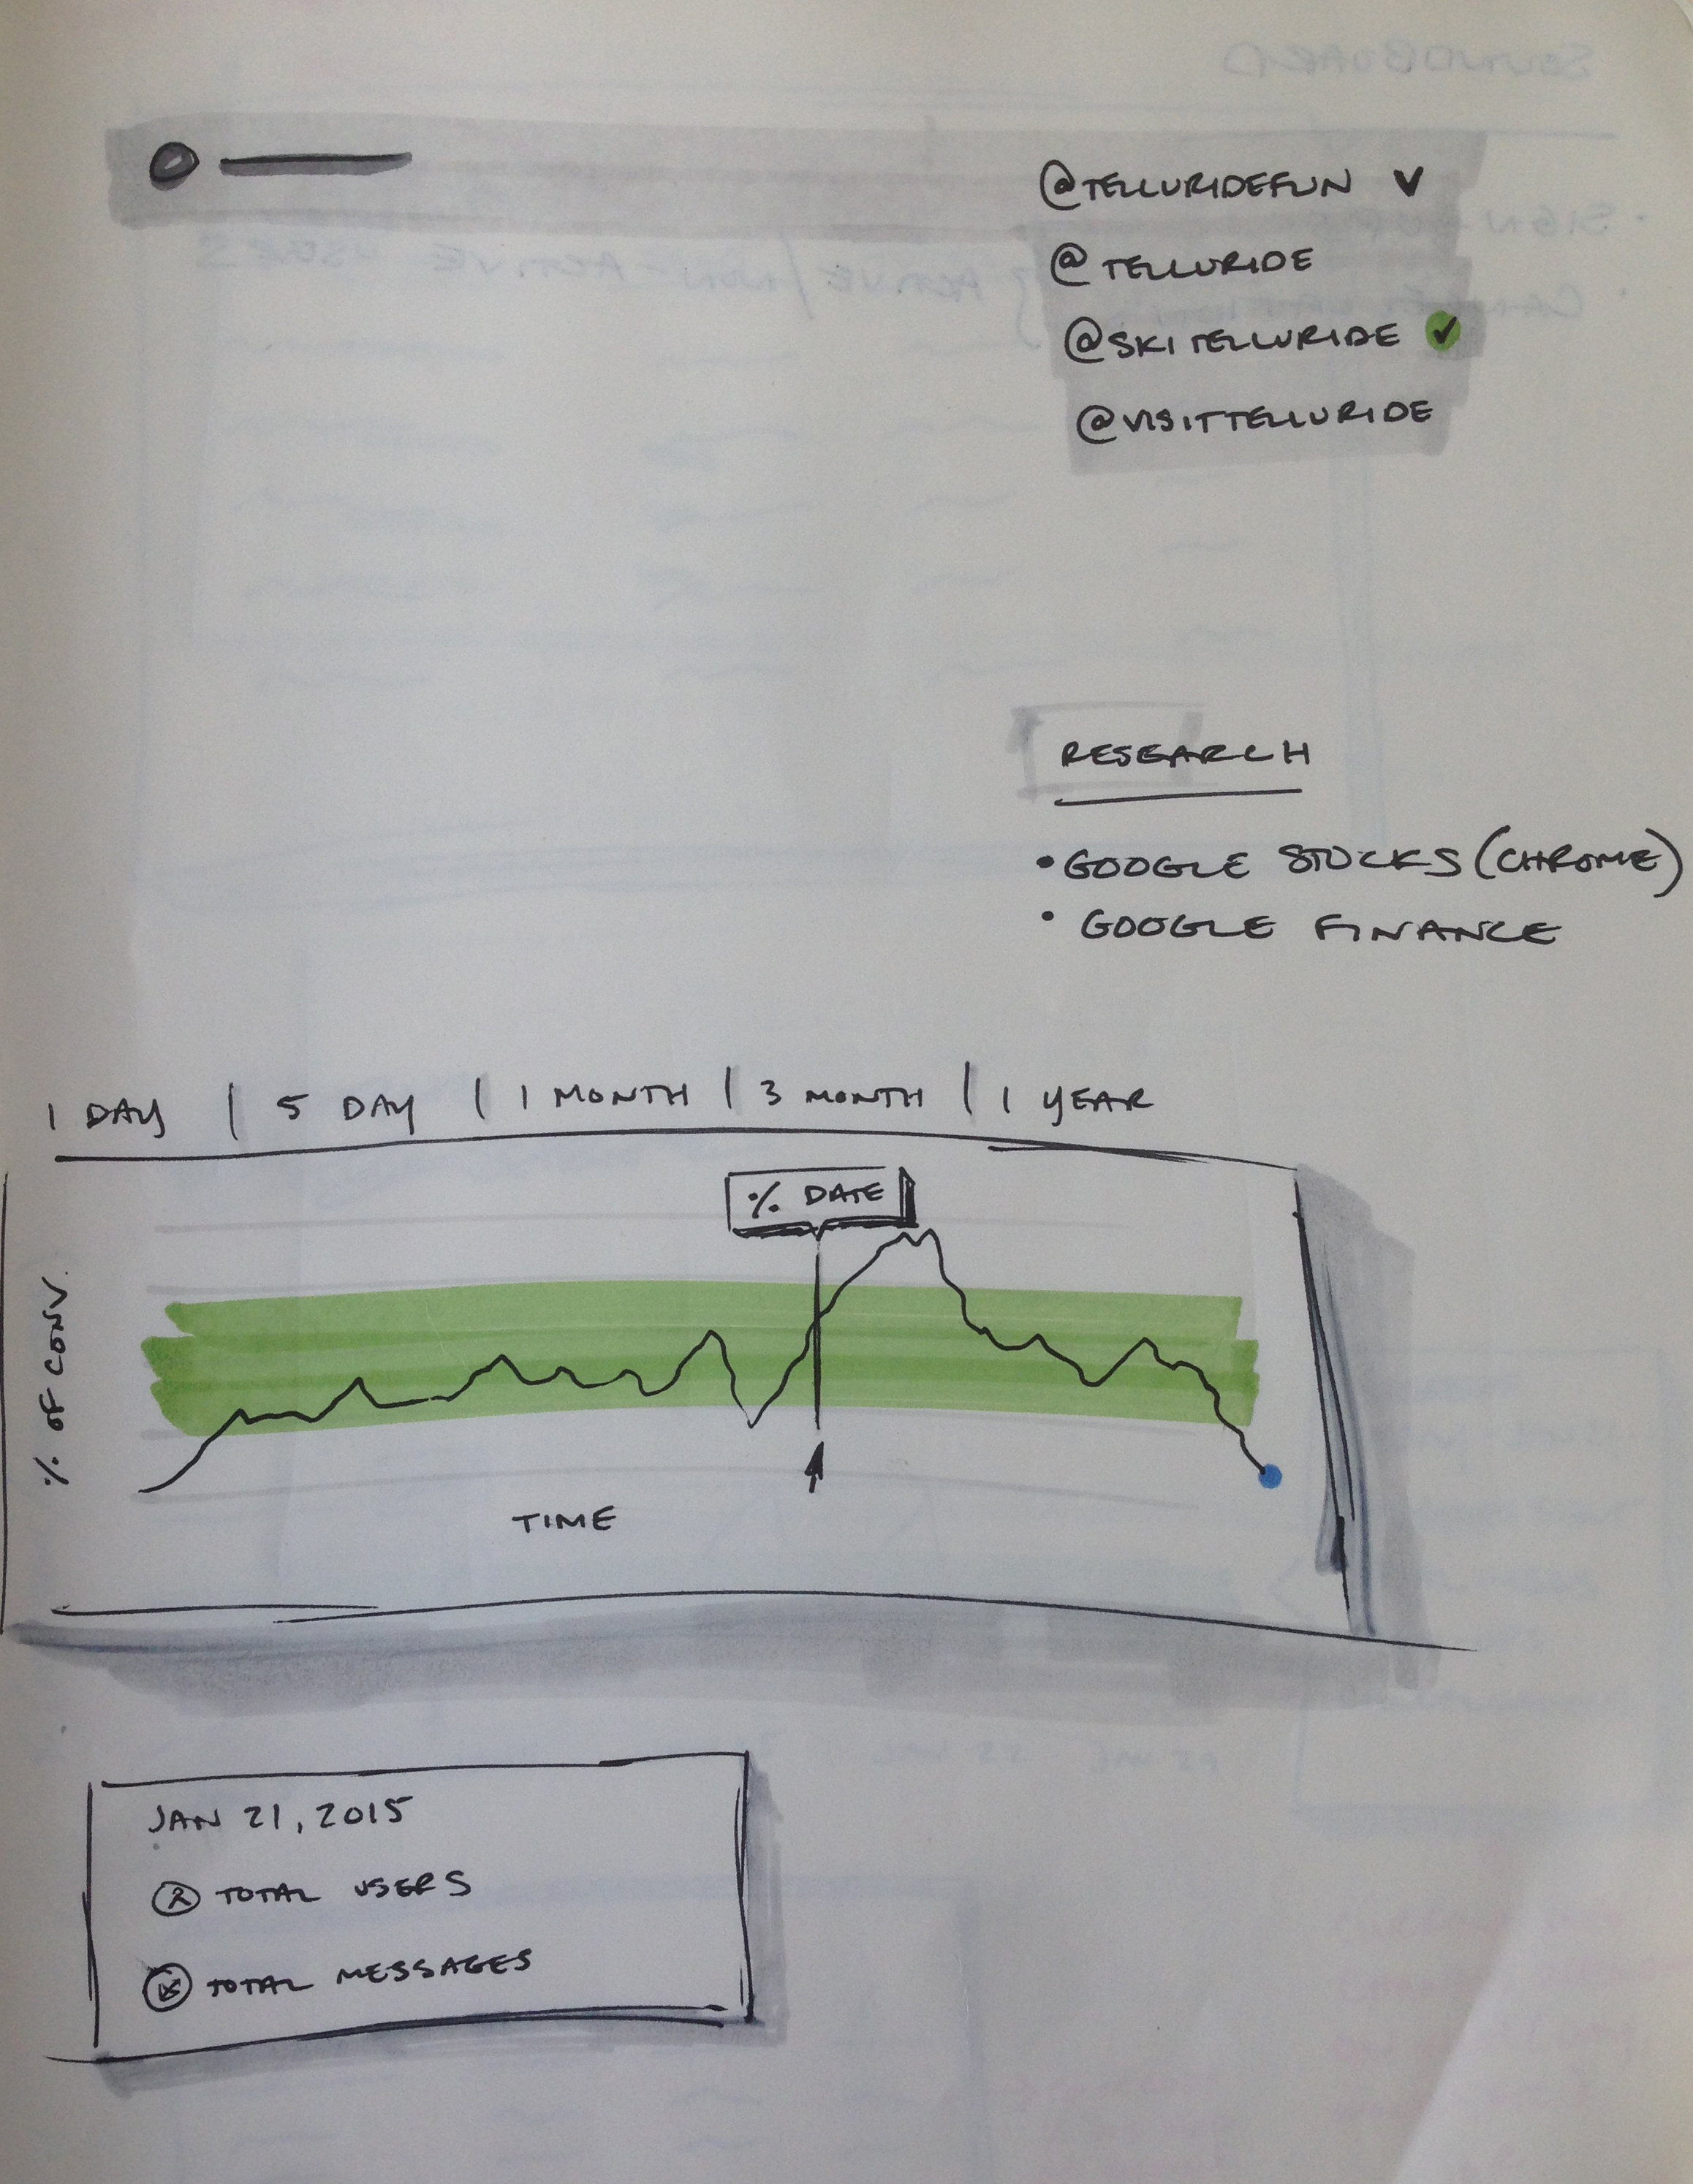 @TELLURIDEFUN
@TELLURIDE
@SKITELLURIDE
@VISITTELLURIDE
RESEARCH
• GOOGLE STOCKS (CHROME)
• GOOGLE FINANCE
1 DAY | 5 DAY | 1 MONTH | 3 MONTH | 1 YEAR
% DATE
% OF CONV.
TIME
JAN 21, 2015
TOTAL USERS
TOTAL MESSAGES
SOUNDBOARD
• SIGN
ACTIVE / NON-ACTIVE USERS